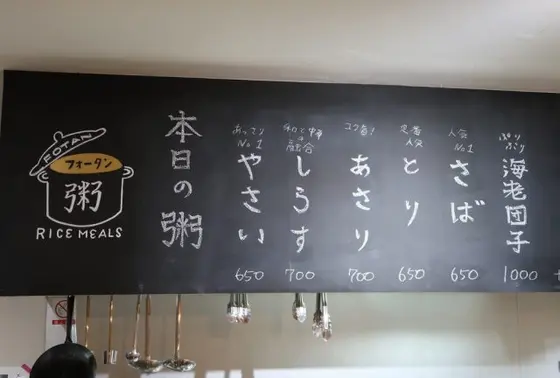 FOTAN
フォータン
粥
RICE MEALS
本日の粥
あっさり
No.1
やさい
650
和と中
の
融合
しらす
700
コク旨!
あさり
700
定番
人気
とり
650
人気
No.1
さば
650
ぷり
ぷり
海老団子
1000